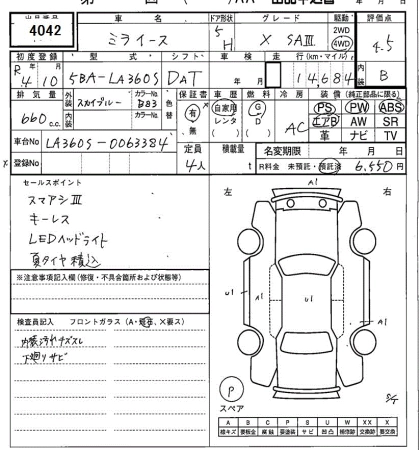 出品番号 車名 ドア形状 グレード 駆動 評価点
4042 ミライース 5H X SAⅢ 2WD 4WD 4.5
初度登録 型式 シフト 車検 走行(km・マイル) 内装
R4 10 5BA-LA360S DAT 年 月 14,684 B
排気量 外装 カラーNo. 色替 保証書 車歴 燃料 冷房 装備 (純正部品に限る)
660c.c. スカイブルー B83 有・無 自家用 レンタ G D AC PS PW ABS
内装 カラーNo. エアB AW SR
革 ナビ TV
車台No LA360S-0063384 定員 積載量 名変期限 年 月 日
登録No 4人 R料金 未預託・預託済 6,550円
セールスポイント
スマアシⅢ
キーレス
LEDヘッドライト
夏タイヤ積込
※注意事項記入欄(修復・不具合箇所および状態等)
検査員記入 フロントガラス(A・飛石、×要ス)
内装汚れキズスレ
下廻りサビ
左 右
A1
U1 A1 U1 A1
A1
P
スペア
A B C P S U W X XX
線キズ 要板金 腐蝕 要塗装 サビ 凹凸 補修跡 交換跡 要交換